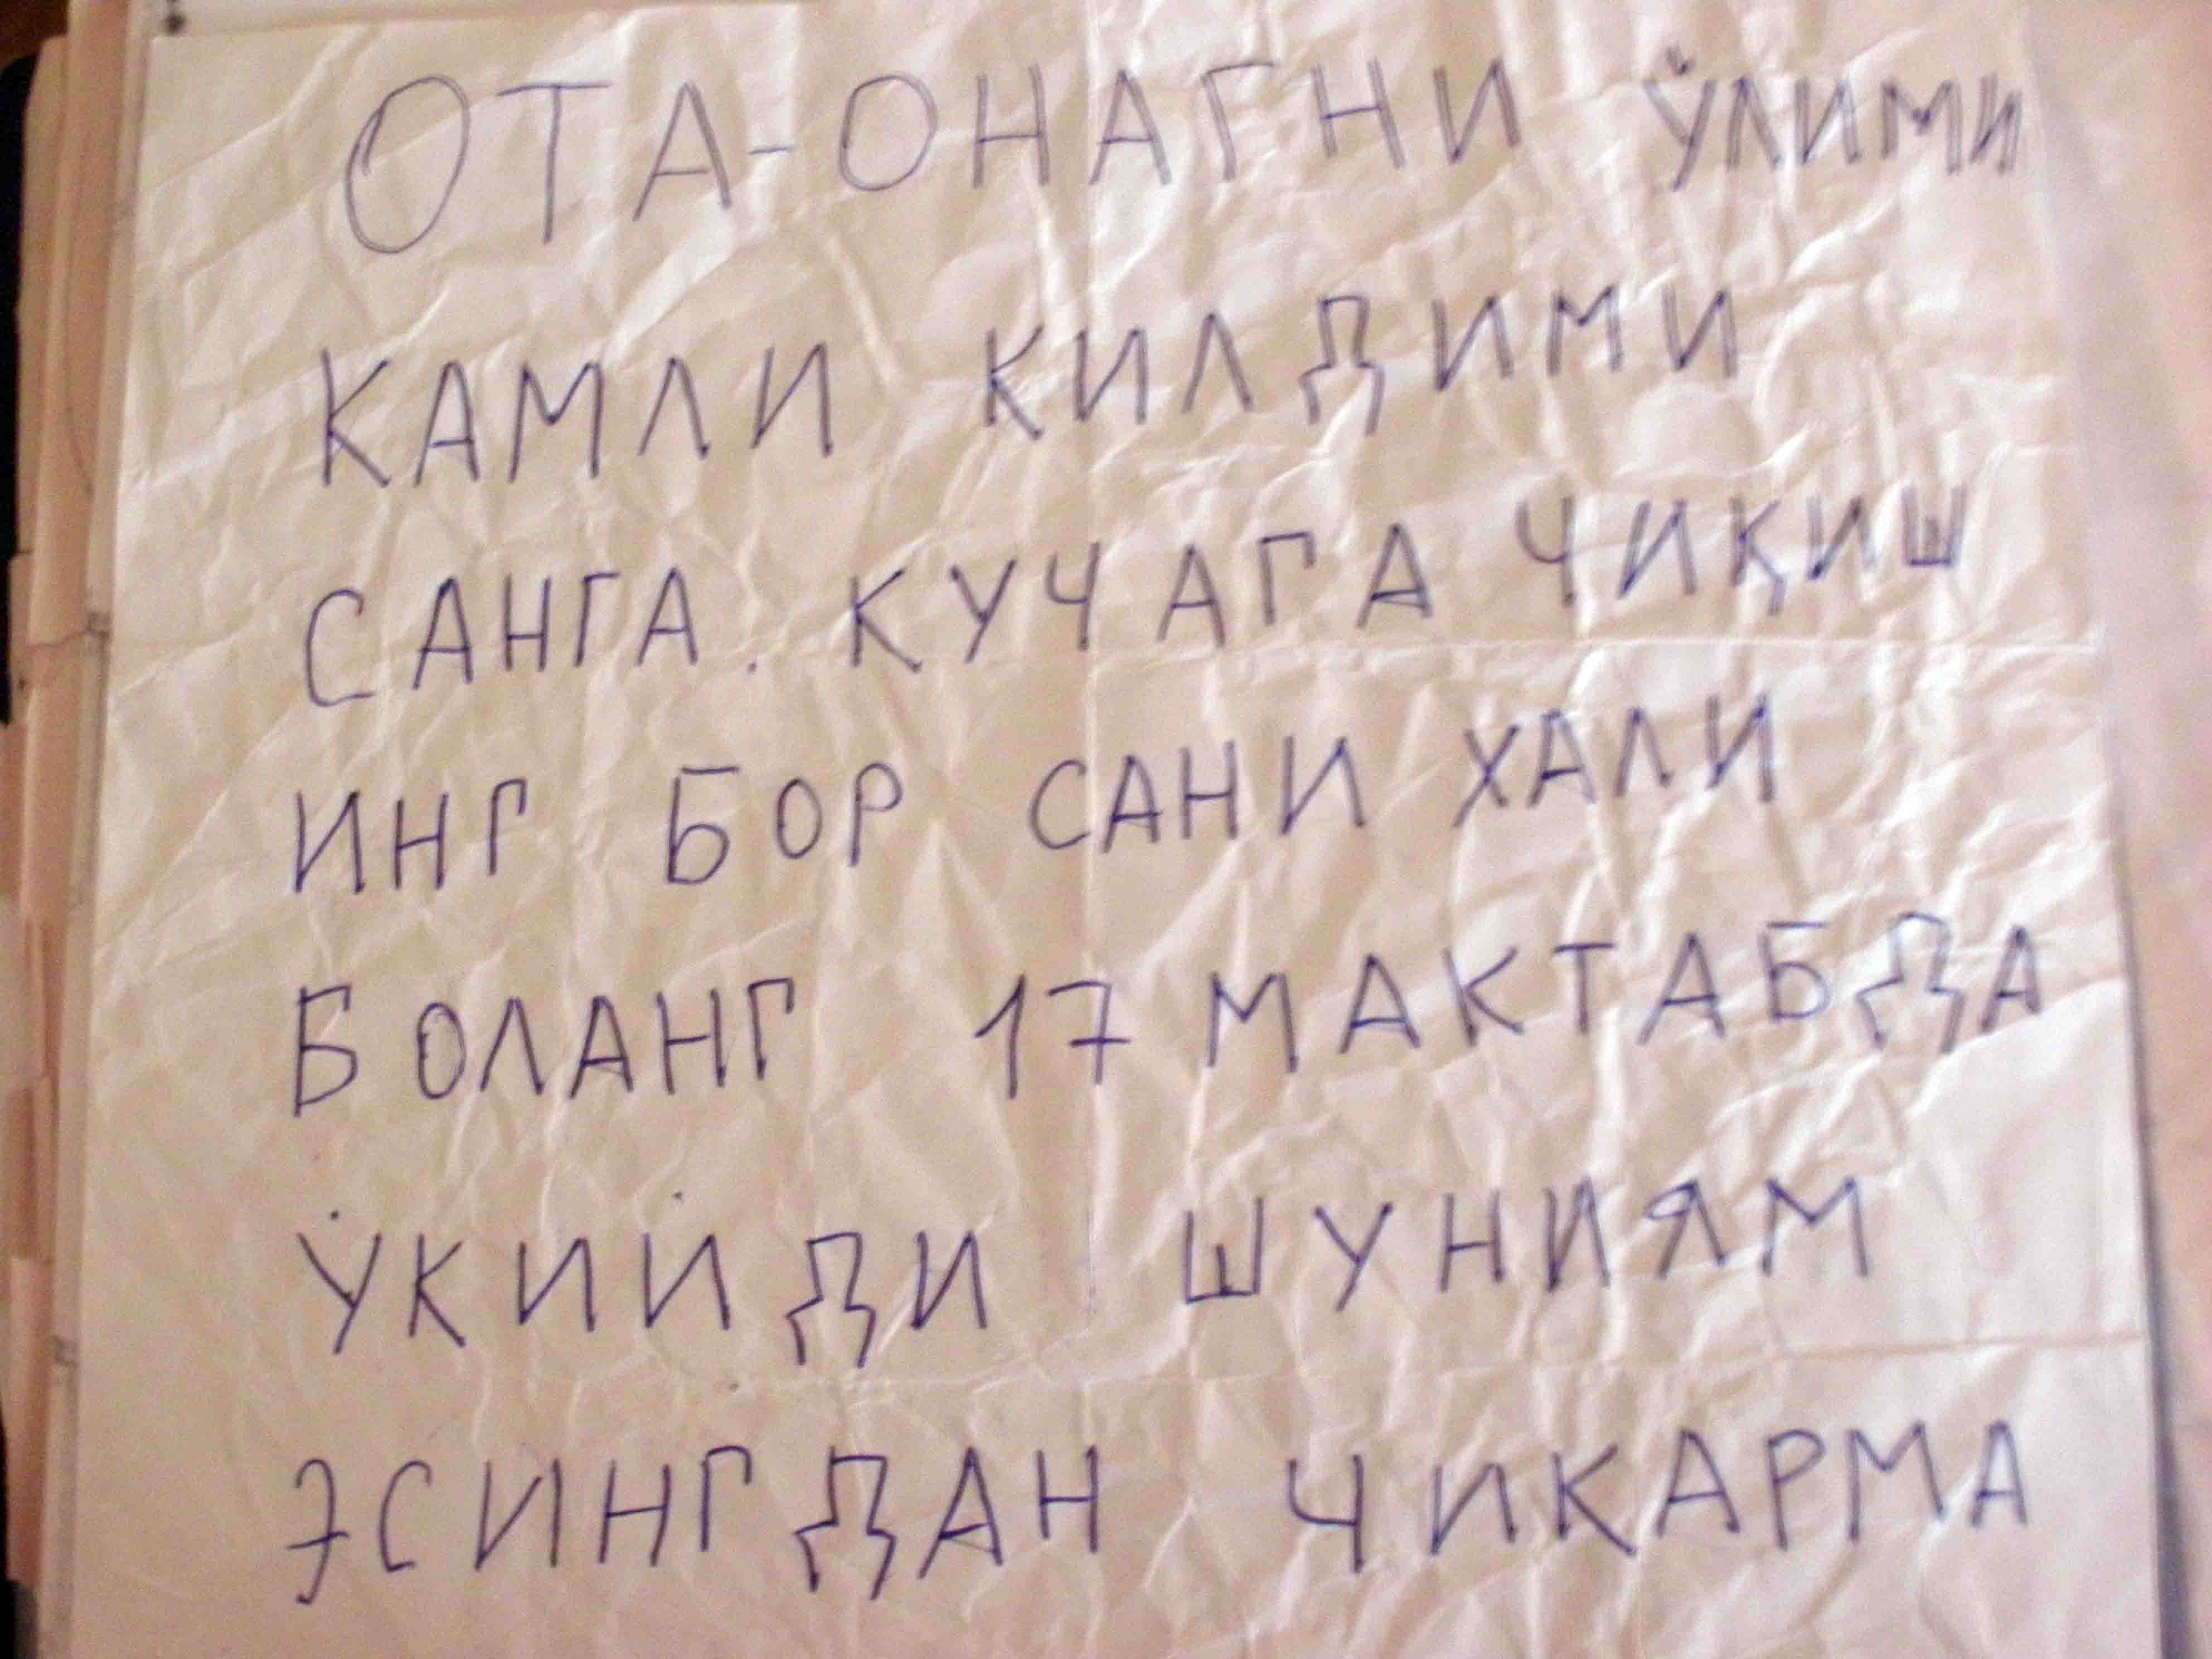 ОТА-ОНАГНИ ЎЛИМИ
КАМЛИ КИЛДИМИ
САНГА. КУЧАГА ЧИҚИШ
ИНГ БОР САНИ ХАЛИ
БОЛАНГ 17 МАКТАБДА
ЎКИЙДИ ШУНИЯМ
ЭСИНГДАН ЧИКАРМА